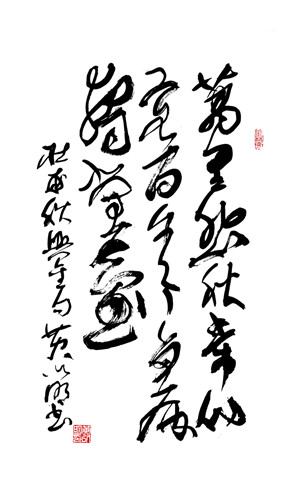 萬里悲秋常作
客百年多病
獨登臺
杜甫秋興句黄明書